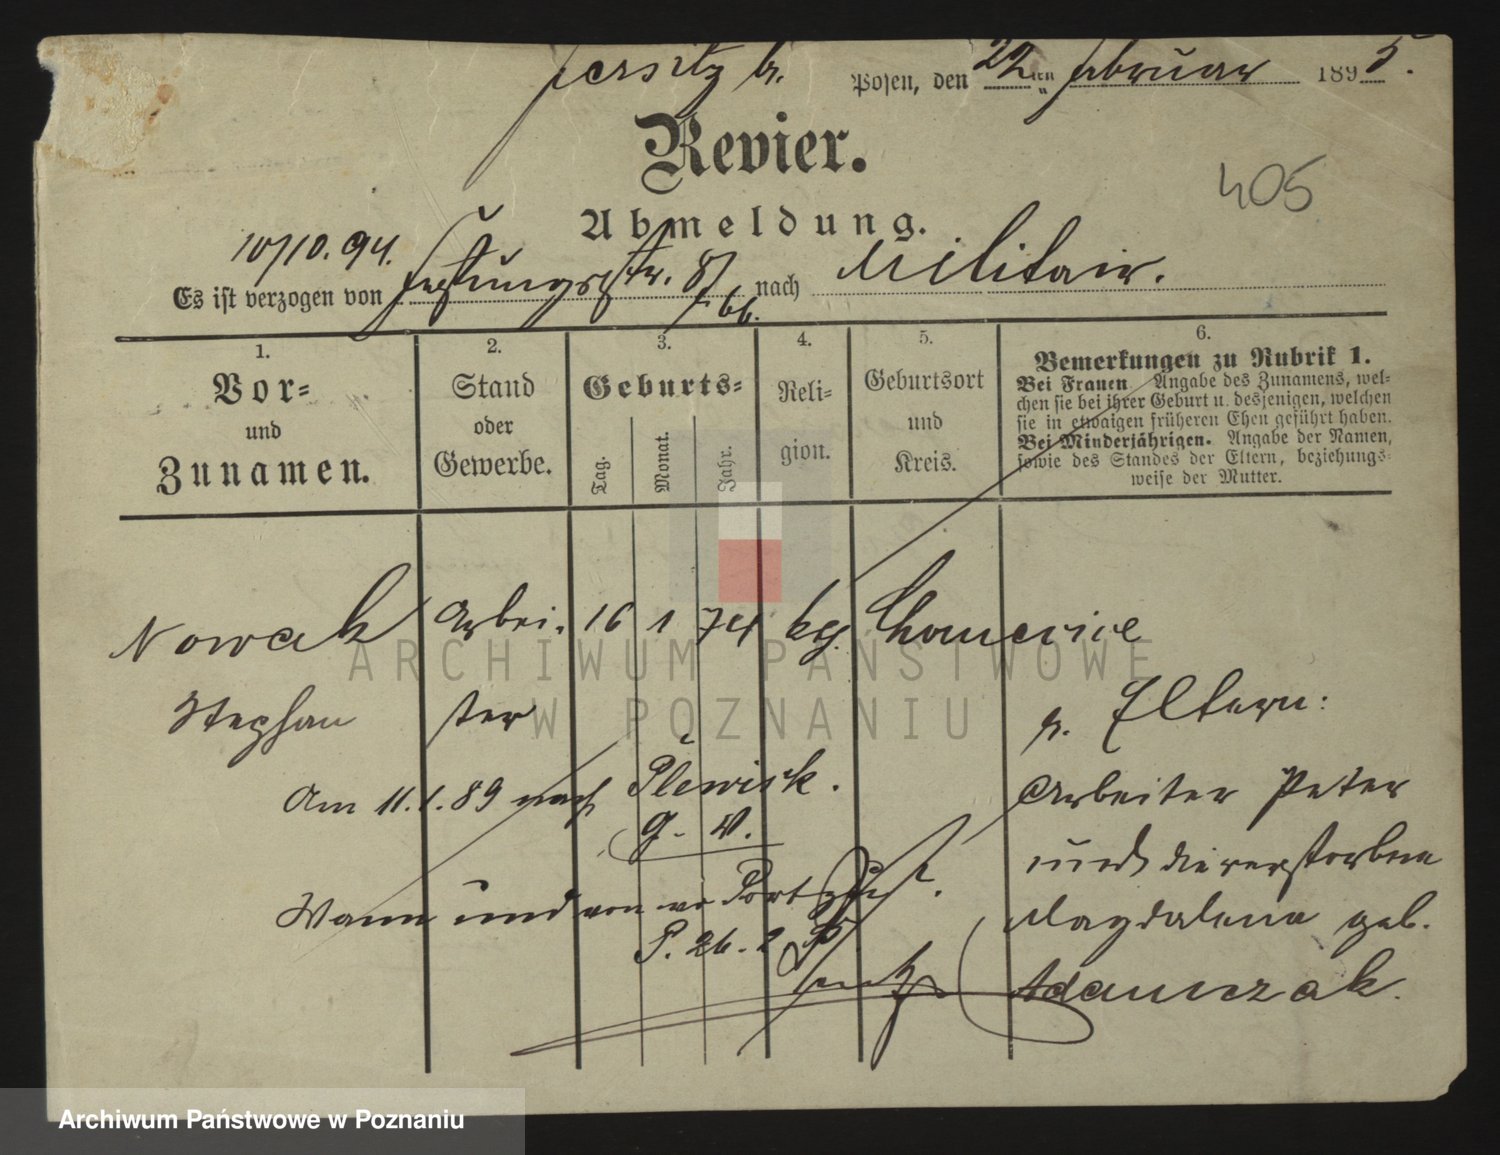 Jersitz b. Posen, den 22ten Februar 1895.
Revier.
405
Abmeldung.
10/10.94.
Es ist verzogen von Festungsstr. 8/ nach Militair.
1.
Vor-
und
Zunamen.
2.
Stand
oder
Gewerbe.
3.
Geburts-
Tag. Monat. Jahr.
4.
Reli-
gion.
5.
Geburtsort
und
Kreis.
6.
Bemerkungen zu Rubrik 1.
Bei Frauen Angabe des Zunamens, wel-
chen sie bei ihrer Geburt u. desjenigen, welchen
sie in etwaigen früheren Ehen geführt haben.
Bei Minderjährigen. Angabe der Namen,
sowie des Standes der Eltern, beziehungs-
weise der Mutter.
Nowak Arbei- 16 1 74 kg.
Stephan ter
Am 11.1.89 nach Plewisk.
G. V.
Wann und von wo
P. 26. 2
Eltern:
Arbeiter Peter
und die verstorbene
Magdalena geb.
Adamczak.
ARCHIWUM PAŃSTWOWE
W POZNANIU
Archiwum Państwowe w Poznaniu